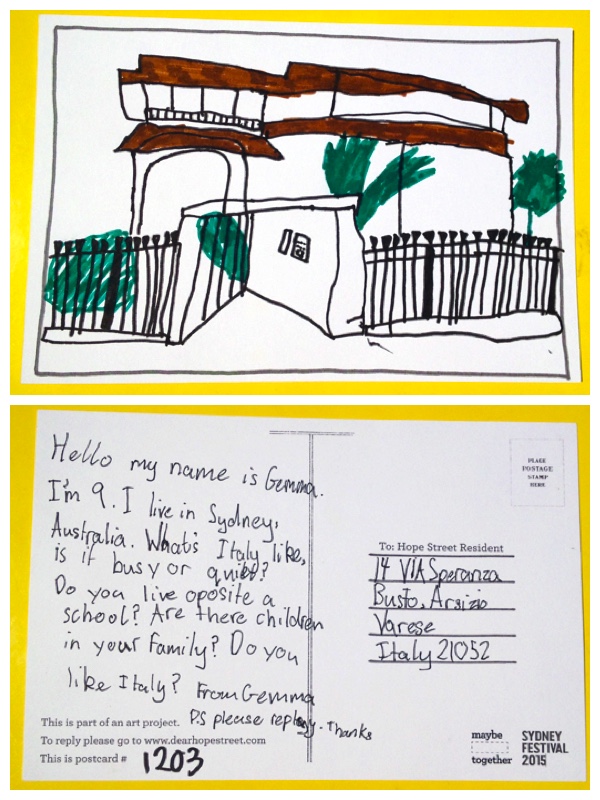 Hello my name is Gemma.
I'm 9. I live in Sydney,
Australia. What's Italy like,
is it busy or quiet?
Do you live oposite a
school? Are there children
in your family? Do you
like Italy? From Gemma
P.S please reply. Thanks
This is part of an art project.
To reply please go to www.dearhopestreet.com
This is postcard # 1203
PLACE
POSTAGE
STAMP
HERE
To: Hope Street Resident
14 VIA Speranza
Busto, Arsizio
Varese
Italy 21052
maybe
together
SYDNEY
FESTIVAL
2015